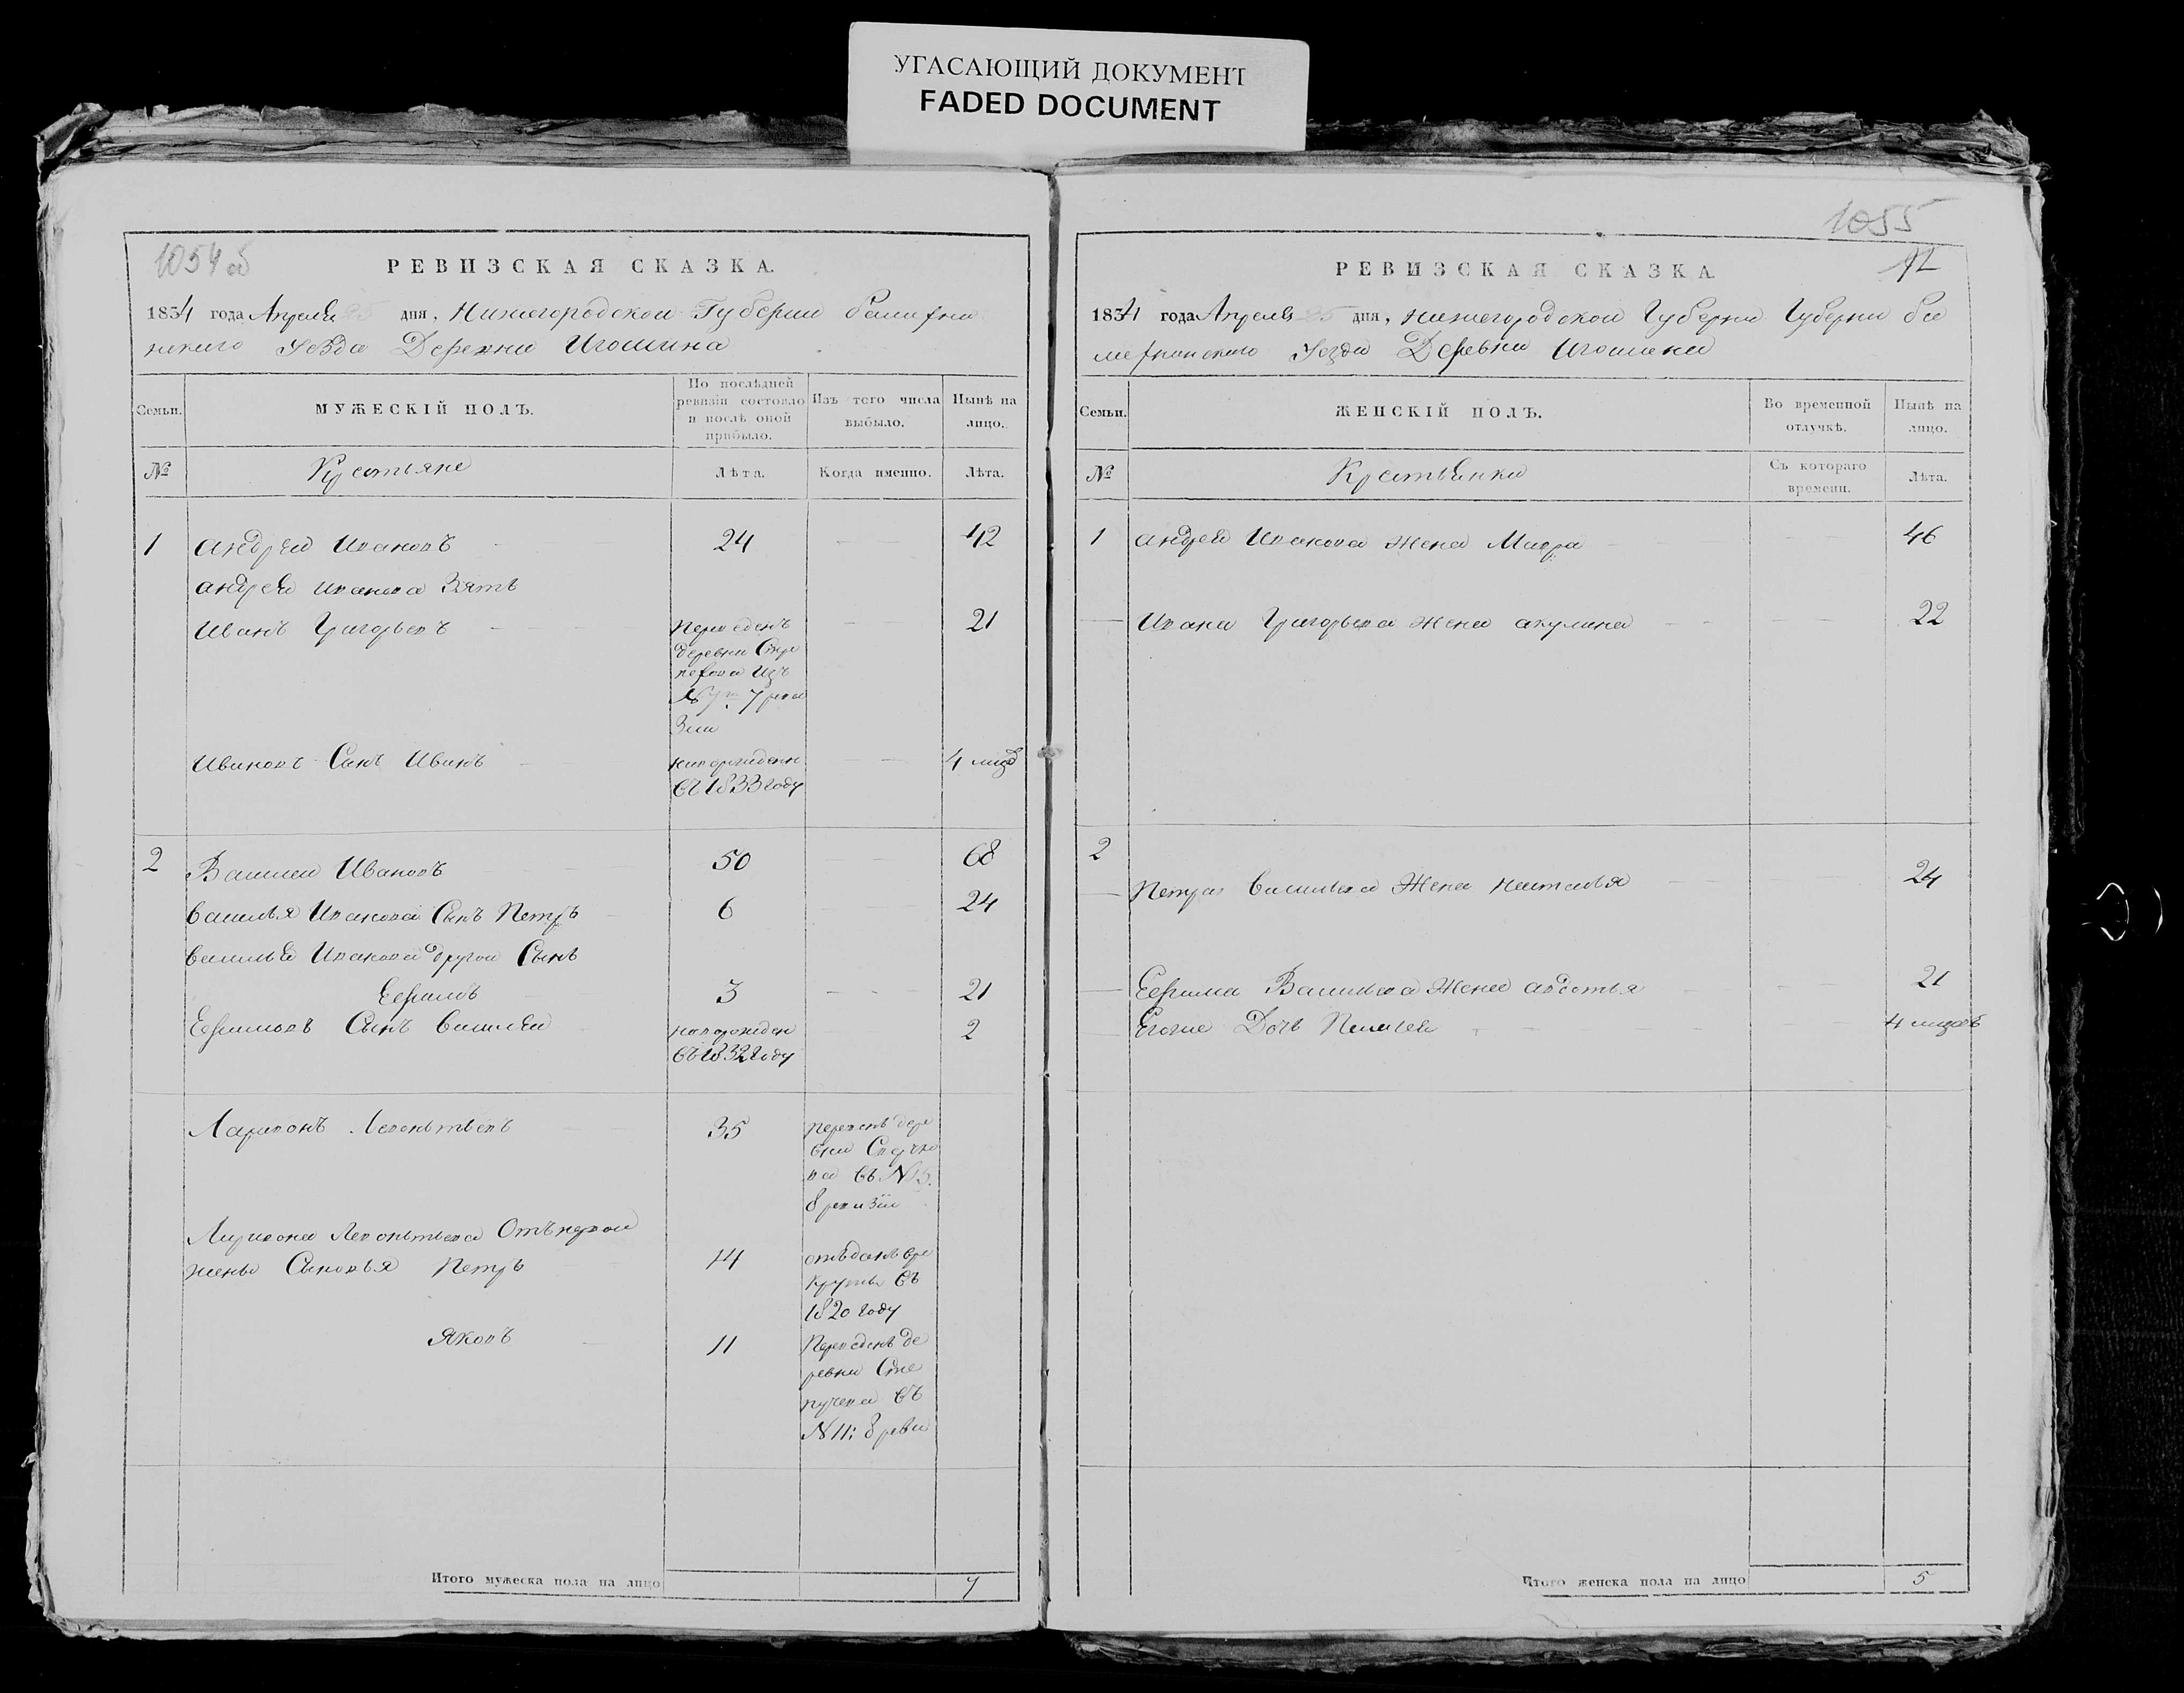 УГАСАЮЩИЙ ДОКУМЕНТ
FADED DOCUMENT
1054 об
РЕВИЗСКАЯ СКАЗКА.
1834 года Апреля 25 дня, Нижегородской Губернии
Уезда Деревни Игошина
Семьи.
МУЖЕСКІЙ ПОЛЪ.
По послѣдней
ревизіи состояло
и послѣ оной
прибыло.
Изъ того числа
выбыло.
Нынѣ на
лицо.
№
Крестьяне
Лѣта.
Когда именно.
Лѣта.
1 Андрей Ивановъ 24 42
Андрея Иванова Зять
Иванъ Григорьевъ 21
Переведенъ
деревни
изъ
7 реви
зіи
Ивановъ Сынъ Иванъ 4 мцв
новорожденъ
въ 1833 году
2 Василей Ивановъ 50 68
Василья Иванова Сынъ Петръ 6 24
Василья Иванова другой Сынъ
Ефимъ 3 21
Ефимовъ Сынъ Василей 2
новорожден
въ 1832 году
Ларивонъ Левонтьевъ 35
дере
вни
въ №5.
8 ревизіи
Ларивона Левонтьева Отъ первой
жены Сыновья Петръ 14
отъданъ вре
круты въ
1820 году
Яковъ 11
Переведенъ де
ревни
въ
№ 11: 8 реви
Итого мужеска пола на лицо 7
1055
12
РЕВИЗСКАЯ СКАЗКА.
1834 года Апреля 25 дня, Нижегородской Губерни Губерни
Уезда Деревни Игошина
Семьи.
ЖЕНСКІЙ ПОЛЪ.
Во временной
отлучкѣ.
Нынѣ на
лицо.
№
Крестьянки
Съ котораго
времени.
Лѣта.
1 Андрея Иванова Жена Мавра 46
Ивана Григорьева Жена акулина 22
2
Петра Васильева Жена Наталья 24
Ефима Васильева Жена авдотья 21
Егоже Дочь Пелагея 4 мцовъ
Итого женска пола на лицо 5